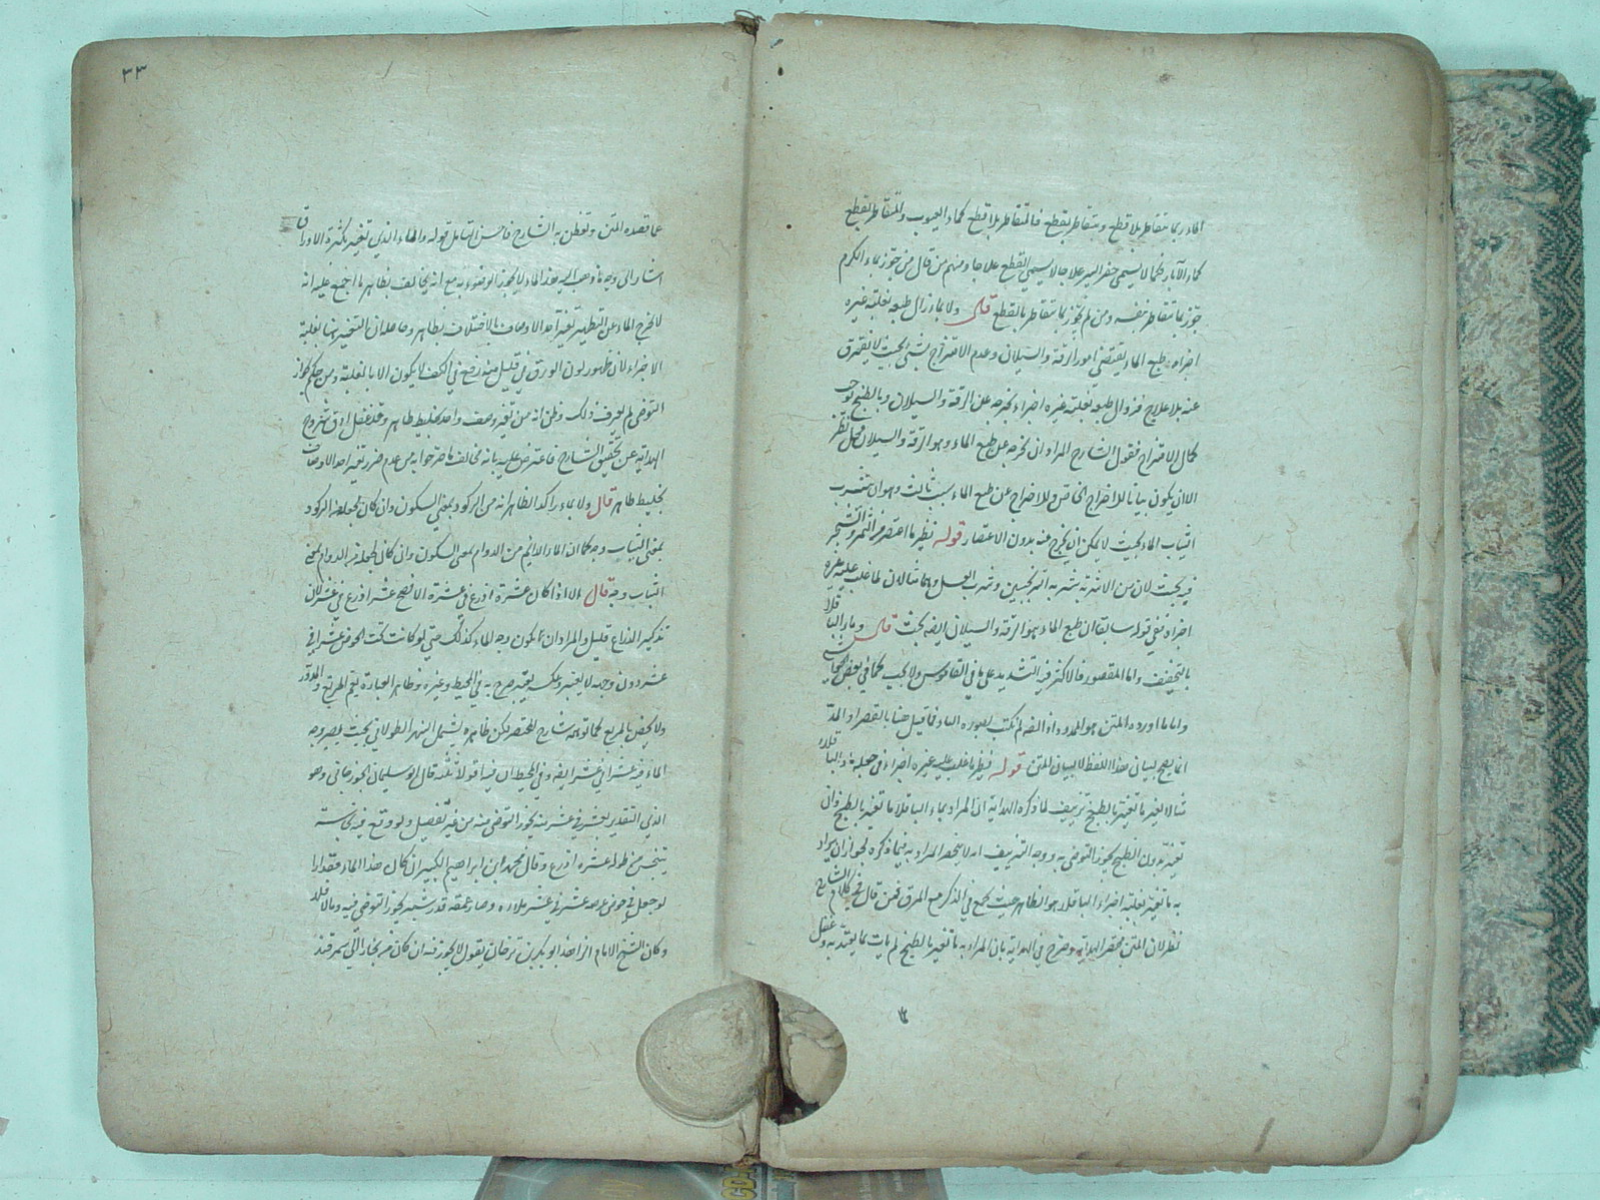 الماء ربما يتقاطر بلا قطع ويتقاطر بقطع فالمتقاطر بلا قطع كماء العيوب والمتقاطر بقطع
كماء الآبار فكما لا يسمى حفر البير علاجا لا يسمى القطع علاجا ومنهم من قال من جوز بماء الكرم
جوز بما يتقاطر بنفسه ومن لم يجوز بما يتقاطر بالقطع قال ولا بماء زال طبعه بغلبة غيره
اجزاء طبع الماء يقتضى امورا رقة والسيلان وعدم الامتزاج بشئ بحيث لا يتفرق
عنه بلا علاج فزوال طبعه بغلبة غيره اجزاء يخرجه عن الرقة والسيلان وبالطبخ يوجب
كمال الامتزاج فقول الشارح المراد ان يخرجه عن طبع الماء وهو الرقة والسيلان محل نظر
الا ان يكون بيانا للاخراج الخاص وللاخراج عن طبع الماء سبب ثالث وهو ان يتشرب
النبات الماء بحيث لا يمكن ان يخرج عنه بدون الاعتصار قوله نظير ما اعتصر من الثمر والشجر
فيه بحث لان من الاشربة شربة الترنجبين وشرب العسل وهما مثالان لما غلب عليه غيره
اجزاء ففى قوله سابقا ان طبع الماء هو الرقة والسيلان ايضا بحث قال وماء الباقلا
بالتخفيف واما المقصور فالاكثر فيه التشديد على ما فى القاموس
واما ما اورده المتن هو الممدود اذ القصر لم يكتب بصورة الياء فما قيل هنا بالقصر او المد
انما يصح لبيان هذا اللفظ لا لبيان المتن قوله نظير ما غلب عليه غيره اجزاء فى جعله ماء الباقلا
مثالا لغير ما تغير بالطبخ تزييف لما ذكره الهداية ان المراد بماء الباقلا ما تغير بالطبخ وان
تغير بدون الطبخ يجوز التوضى به ووجه التزييف انه لا ينحصر المراد به فيما ذكره لجواز ان يراد
به ما تغير بغلبة اجزاء الباقلا وهو الظاهر حيث جمع فى الذكر مع المرق فمن قال فى كلام الشارح
نظر لان المتن مختصر الهداية وصرح فى الهداية بان المراد به ما تغير بالطبخ لم يأت بما يعتد به وغفل
٣٣
عما قصده المتن وتفطن به الشارح فاحسن التأمل قوله والماء الذى تغير بكثرة الاوراق
اشار الى وجه ما ذهب اليه هذا الماء لا يجوز الوضوء به مع انه يخالف بظاهر ما اجمع عليه انه
لا يخرج الماء عن التطهير تغير احد الاوصاف بالاختلاط بطاهر وحاصله ان التغير بها بغلبة
الاجزاء لان ظهور لون الورق فى قليل منه رفع فى الكف لا يكون الا بالغلبة ومن حكم بجواز
التوضى لم يعرف ذلك وظن انه من تغير وصف واحد بخليط طاهر وقد غفل ادق شروح
الهداية عن تحقيق الشارح فاعترض عليه بانه مخالف ما صرحوا به من عدم ضرر تغير احد الاوصاف
بخليط طاهر قال ولا بماء راكد الظاهر انه من الركود بمعنى السكون وان كان يجعله من الركود
بمعنى الثبات وجه كما ان الماء الدائم من الدوام بمعنى السكون وان كان لجعله من الدوام بمعنى
الثبات وجه قال الا اذا كان عشرة اذرع فى عشرة الافصح عشر اذرع فى عشر لان
تذكير الذراع قليل والمراد ان يكون وجه الماء كذلك حتى لو كانت تحت الحوض عشرا فى
عشر دون وجهه لا يعتبر وعكسه يعتبر صرح به فى المحيط وغيره وظاهر العبارة يعم المربع والمدور
ولا يختص بالمربع كما توهمه شارح المختصر لكن ظاهره يشمل النهر الطولانى بحيث يصير وجه
الماء فيه عشرا فى عشر ايضا وفى المحيط ان فيه اقوالا ثلثة قال ابو سليمان الجوزجانى وهو
الذى التقدير بعشر فى عشر منه يجوز التوضى منه من غير تفصيل ولو وقع فيه نجاسة
يتنجس من طوله عشرة اذرع وقال محمد ابن ابراهيم الكبير ان كان هذا الماء مقدارا
لو جعل فى حوض عرضه عشر فى عشر ملأه وصار عمقه قدر شبر يجوز التوضى فيه والا فلا
وكان الشيخ الامام الزاهد ابو بكر بن طرخان يقول لا يجوز فيه ان كان من بخارا الى سمرقند